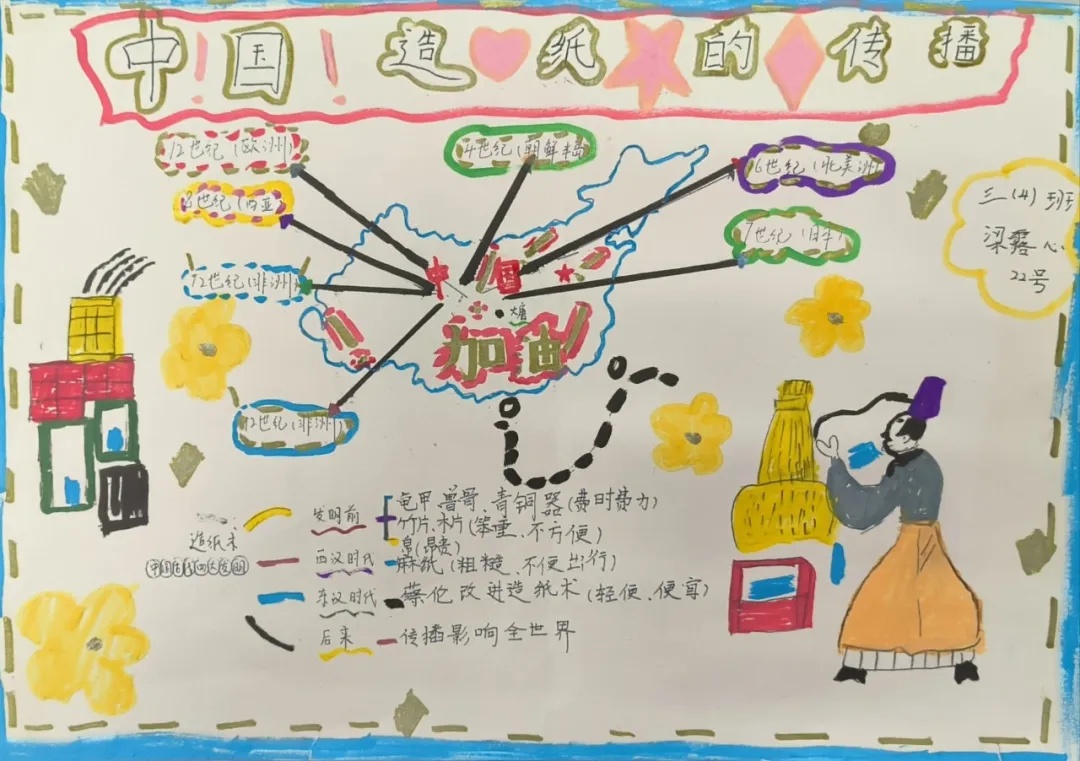 中国造纸的传播
12世纪(欧洲)
4世纪(朝鲜半岛)
16世纪(北美洲)
8世纪(西亚)
7世纪(日本)
12世纪(非洲)
12世纪(非洲)
三(4)班
梁露心
22号
中国
加油
造纸术
发明前
龟甲、兽骨、青铜器(费时费力)
竹片、木片(笨重、不方便)
帛(昂贵)
西汉时代
麻纸(粗糙、不便书写)
东汉时代
蔡伦改进造纸术(轻便、便宜)
后来
传播影响全世界